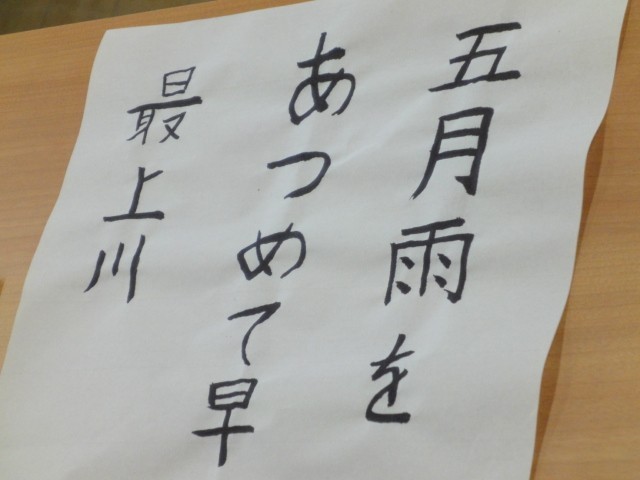 五月雨を
あつめて早
最上川